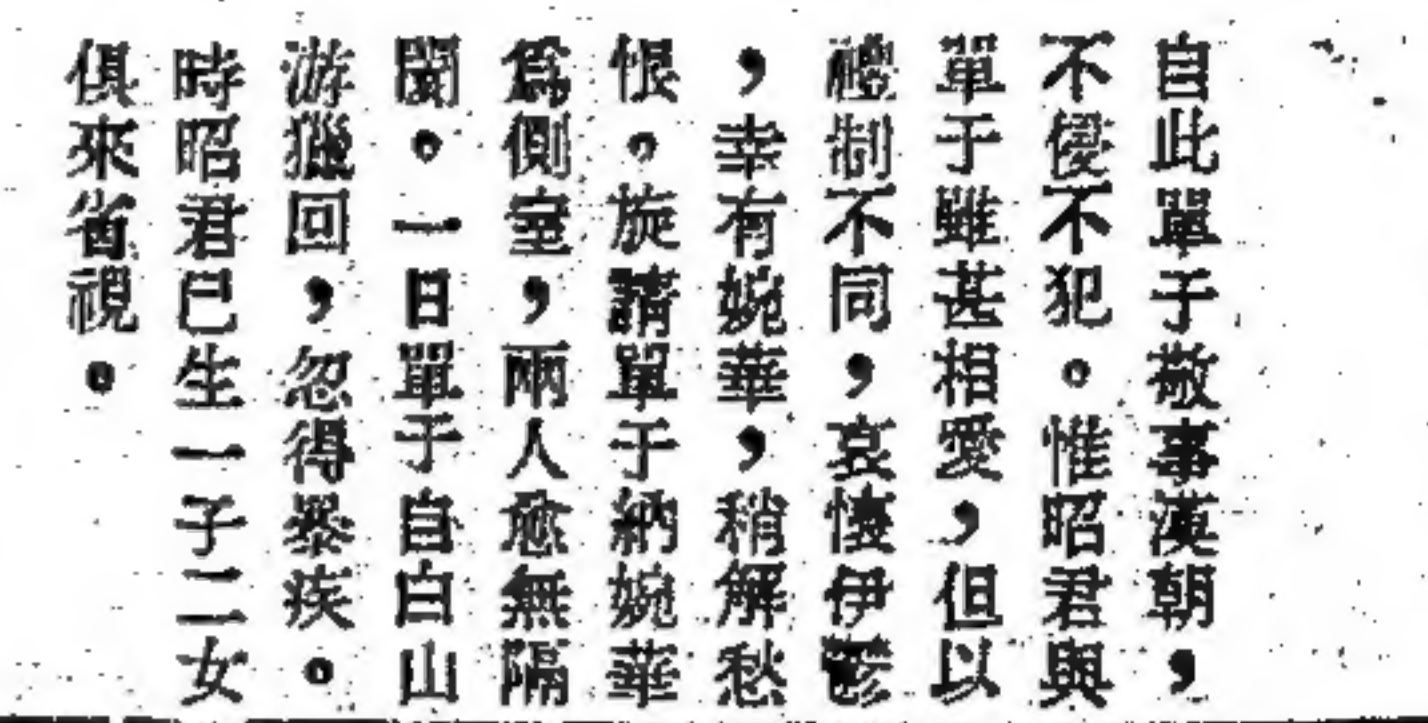 自此單于敬事漢朝，
不侵不犯。惟昭君與
單于雖甚相愛，但以
禮制不同，哀懷伊鬱
，幸有婉華，稍解愁
恨。旋請單于納婉華
為側室，兩人愈無隔
閡。一日單于自白山
游獵回，忽得暴疾。
時昭君已生一子二女
俱來省視。